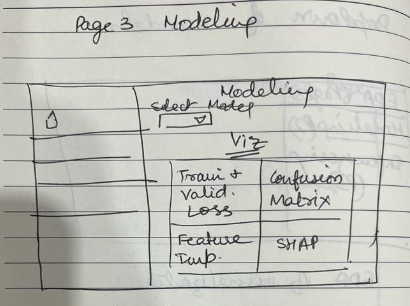 Page 3 Modeling
Modeling
Select Model
Viz
Train +
Valid.
Loss
Confusion
Matrix
Feature
Imp.
SHAP